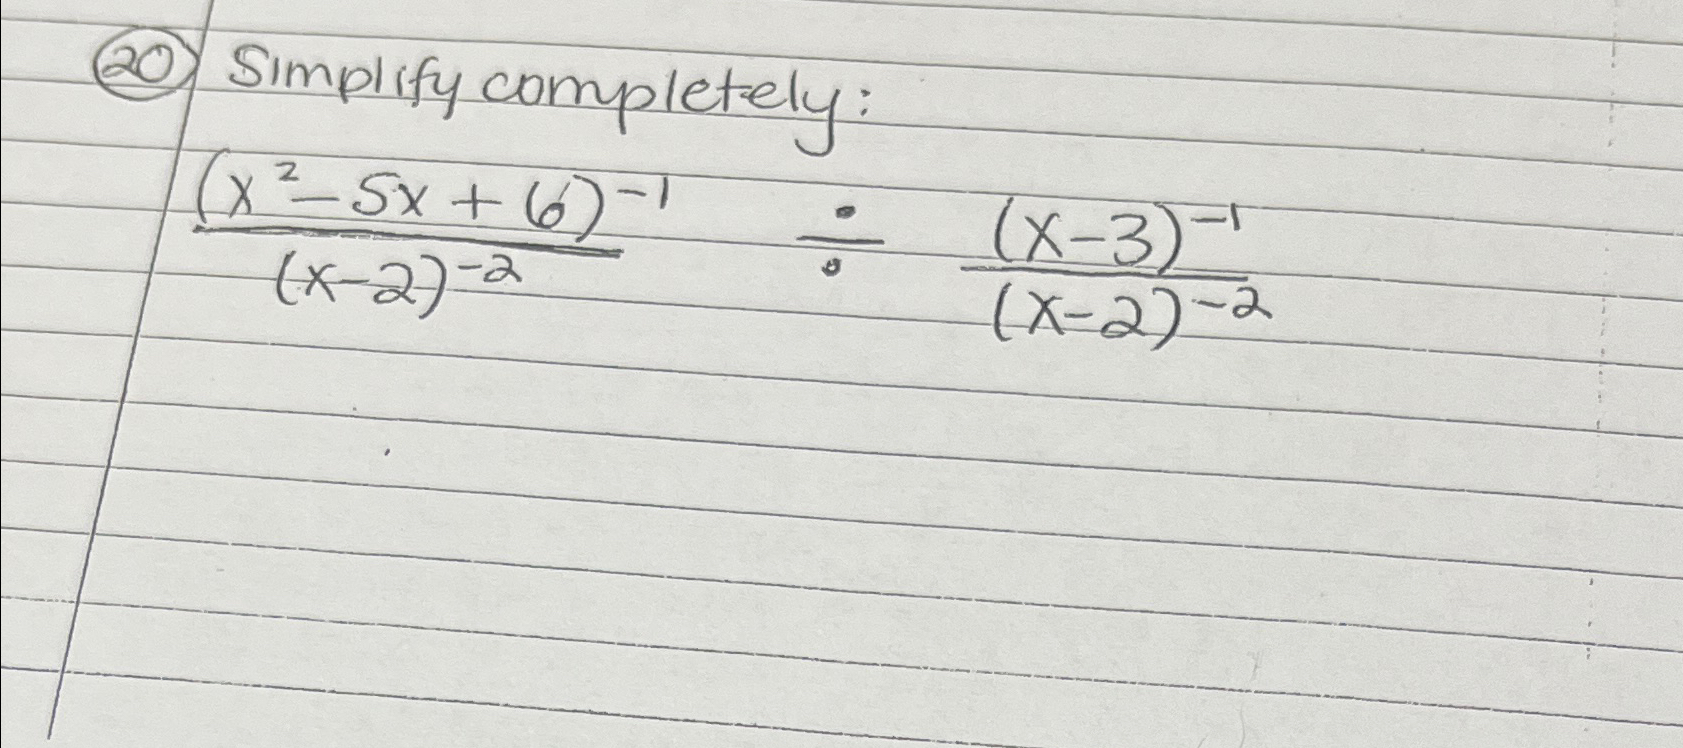 20 Simplify completely:
(x²-5x+6)⁻¹ ÷ (x-3)⁻¹
(x-2)⁻² (x-2)⁻²